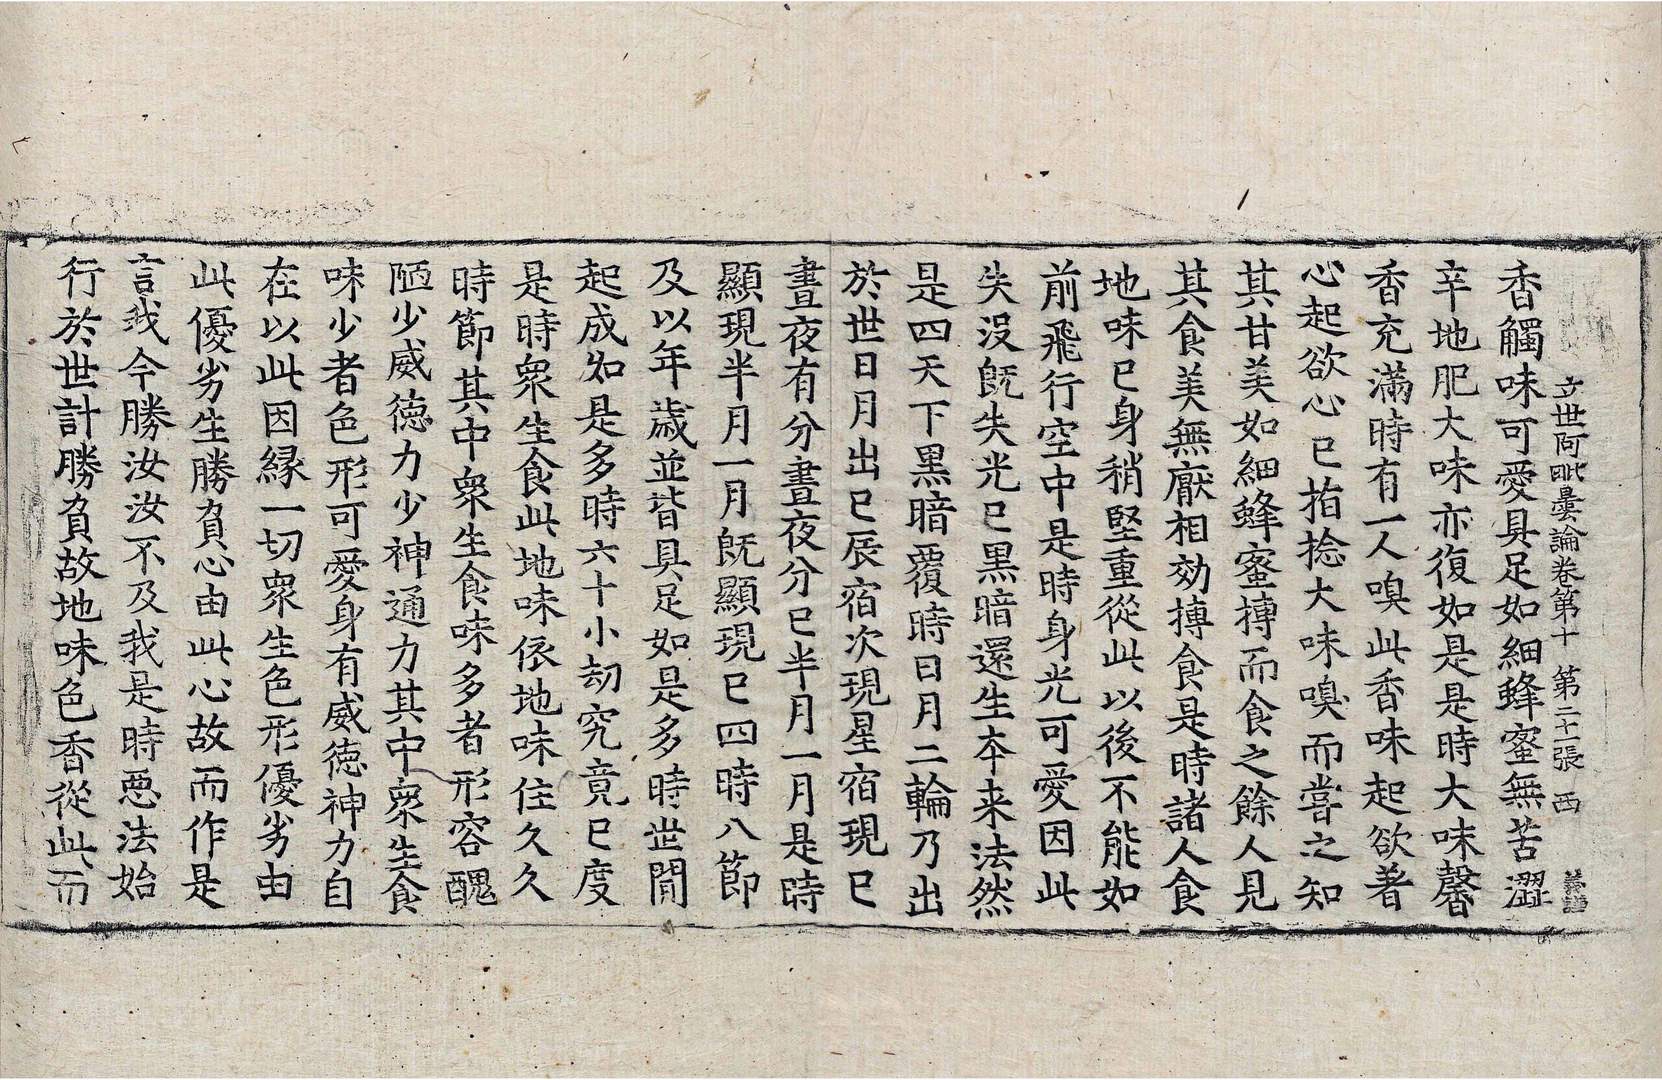 立世阿毗曇論卷第十 第二十一張 西
香觸味可愛具足如細蜂蜜無苦澀
辛地肥大味亦復如是是時大味馨
香充滿時有一人嗅此香味起欲著
心起欲心已指捻大味嗅而嘗之知
其甘美如細蜂蜜摶而食之餘人見
其食美無厭相効摶食是時諸人食
地味已身稍堅重從此以後不能如
前飛行空中是時身光可愛因此
失没旣失光已黒暗還生夲来法然
是四天下黒暗覆時日月二輪乃出
於世日月出已辰宿次現星宿現已
晝夜有分晝夜分已半月一月是時
顯現半月一月旣顯現已四時八節
及以年歲並皆具足如是多時世閒
起成如是多時六十小劫究竟已度
是時衆生食此地味依地味住久久
時節其中衆生食味多者形容醜
陋少威德力少神通力其中衆生食
味少者色形可愛身有威德神力自
在以此因縁一切衆生色形優劣由
此優劣生勝負心由此心故而作是
言我今勝汝汝不及我是時惡法始
行於世計勝負故地味色香從此而